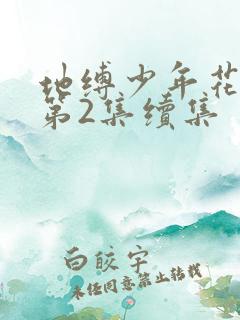 地缚少年花
第2集续集
白皎宇
未经同意禁止转载